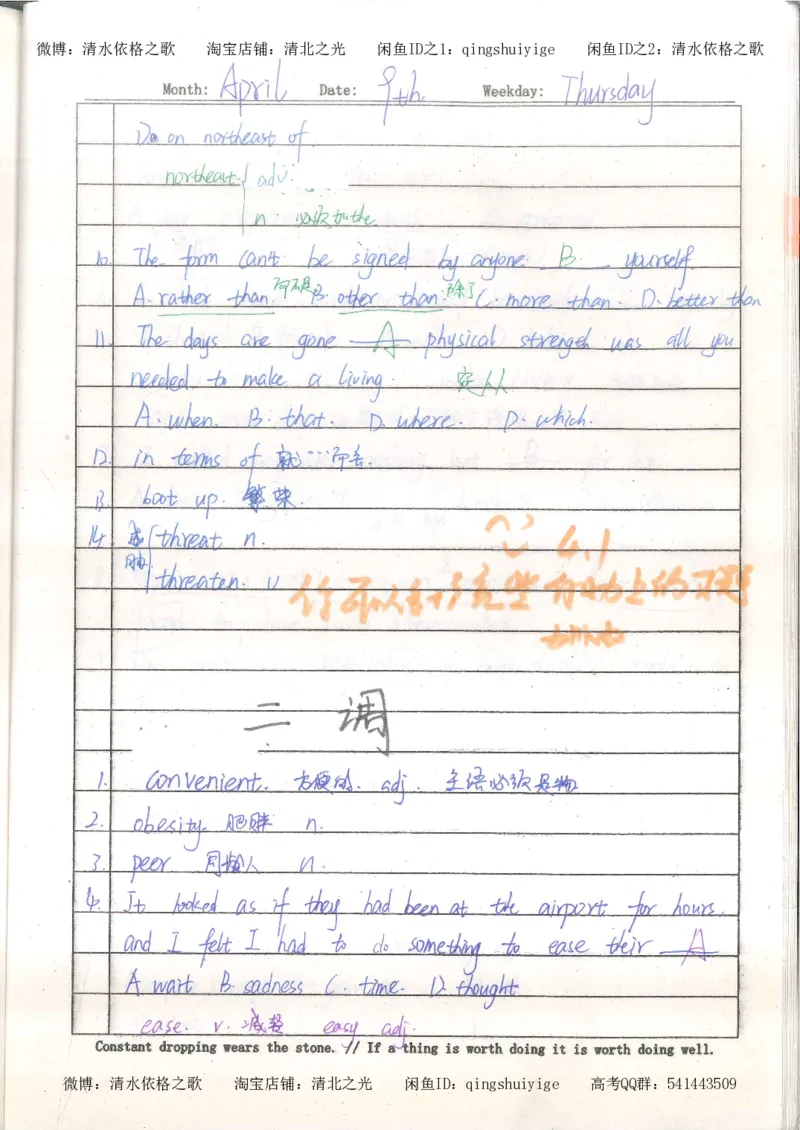 微博：清水依格之歌 淘宝店铺：清北之光 闲鱼ID之1：qingshuiyige 闲鱼ID之2：清水依格之歌
Month: April Date: 9th. Weekday: Thursday
on northeast of
northeast { adv.
n 必须加the.
10. The form can't be signed by anyone B yourself.
A. rather than. 而不是 B. other than. 除了 C. more than. D. better than
11. The days are gone A physical strength was all you
needed to make a living. 定从
A. when. B. that. D. where. D. which.
12. in terms of 就……而言.
13. boot up. 繁荣.
14. 威胁 { threat n.
threaten. v
4.1
你可以打完些 的习题
二 调
1. convenient. 方便的. adj. 主语必须是物
2. obesity 肥胖 n.
3. peer 同龄人 n.
4. It looked as if they had been at the airport for hours,
and I felt I had to do something to ease their A
A wait B. sadness C. time. D. thought
ease. v. 减轻 easy adj.
Constant dropping wears the stone. // If a thing is worth doing it is worth doing well.
微博：清水依格之歌 淘宝店铺：清北之光 闲鱼ID：qingshuiyige 高考QQ群：541443509